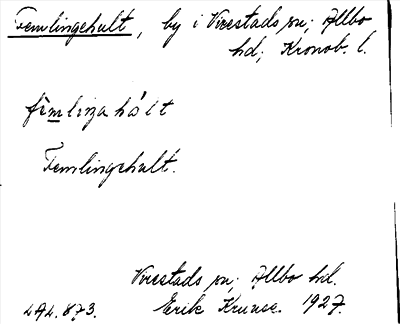 Femlingehult, by i Virestads sn; Allbo
hd; Kronob. l.
fèmliŋahấlt
Femlingehult.
Virestads sn; Allbo hd.
LAL. 873. Erik Kruuse. 1927.